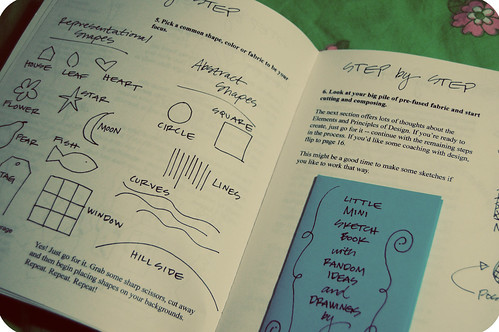 by STEP
5. Pick a common shape, color or fabric to be your
focus.
Representational
Shapes
HOUSE
LEAF
HEART
STAR
FLOWER
MOON
PEAR
FISH
TAG
WINDOW
Abstract
Shapes
CIRCLE
SQUARE
LINES
CURVES
HILLSIDE
Yes! Just go for it. Grab some sharp scissors, cut away
and then begin placing shapes on your backgrounds.
Repeat. Repeat. Repeat!
STEP by STEP
6. Look at your big pile of pre-fused fabric and start
cutting and composing.
The next section offers lots of thoughts about the
Elements and Principles of Design. If you're ready to
create, just go for it — continue with the remaining steps
in the process. If you'd like some coaching with design,
flip to page 16.
This might be a good time to make some sketches if
you like to work that way.
LITTLE
MINI
SKETCH
BOOK
with
RANDOM
IDEAS
and
DRAWINGS
by